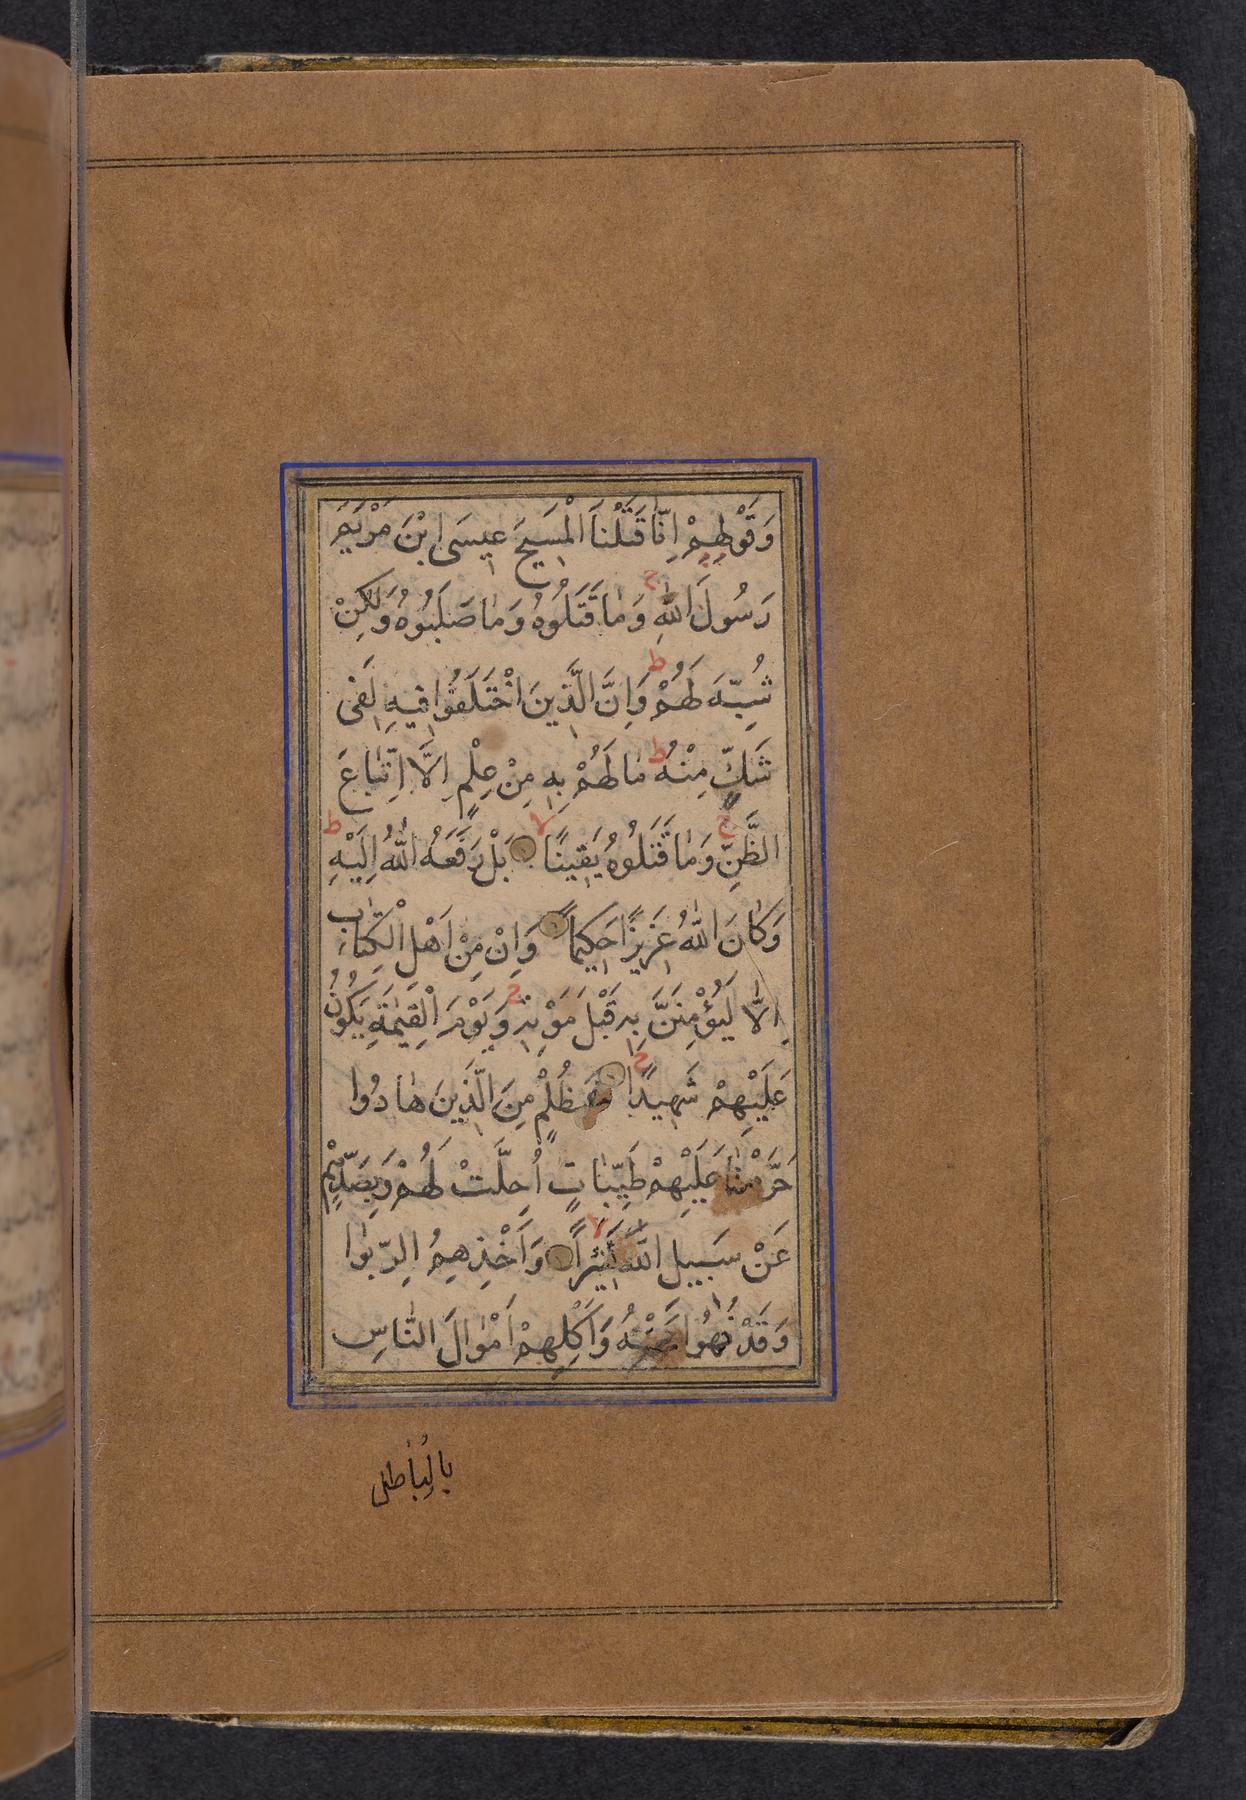 وَقَوْلِهِمْ اِنّٰا قَتَلْنَا الْمَسِيحَ عِيسَى ابْنَ مَرْيَمَ
رَسُولَ اللّٰهِ ج وَمٰا قَتَلُوهُ وَمٰا صَلَبُوهُ وَلٰكِنْ
شُبِّهَ لَهُمْ ط وَاِنَّ الَّذِينَ اخْتَلَفُوا فِيهِ لَفِى
شَكٍّ مِنْهُ ط مٰا لَهُمْ بِهِ مِنْ عِلْمٍ اِلَّا اتِّبٰاعَ
الظَّنِّ ج وَمٰا قَتَلُوهُ يَقِينًا لا بَلْ رَفَعَهُ اللّٰهُ اِلَيْهِ ط
وَكٰانَ اللّٰهُ عَزِيزًا حَكِيمًا وَاِنْ مِنْ اَهْلِ الْكِتٰابِ
اِلّٰا لَيُؤْمِنَنَّ بِهِ قَبْلَ مَوْتِهِ ج وَيَوْمَ الْقِيٰمَةِ يَكُونُ
عَلَيْهِمْ شَهِيدًا ج فَبِظُلْمٍ مِنَ الَّذِينَ هٰادُوا
حَرَّمْنٰا عَلَيْهِمْ طَيِّبٰاتٍ اُحِلَّتْ لَهُمْ وَبِصَدِّهِمْ
عَنْ سَبِيلِ اللّٰهِ كَثِيرًا لا وَاَخْذِهِمُ الرِّبٰوا
وَقَدْ نُهُوا عَنْهُ وَاَكْلِهِمْ اَمْوٰالَ النّٰاسِ
بِالْبٰاطِلِ